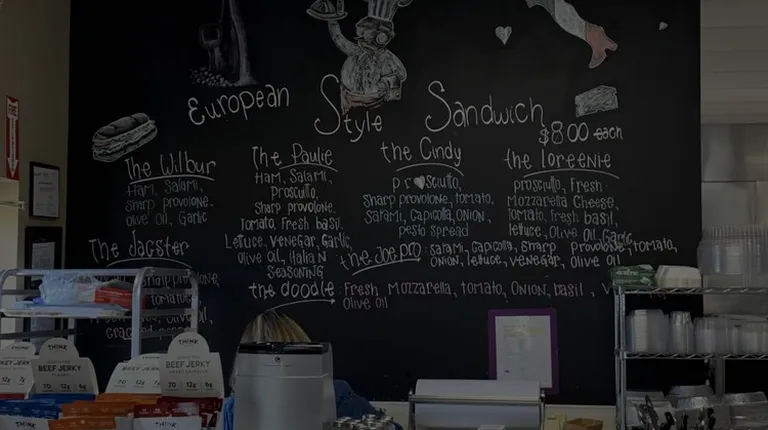 European Style Sandwich
$8.00 each
The Wilbur
Ham, Salami,
Sharp provolone,
Olive Oil, Garlic
The Paulie
Ham, Salami,
Prosciutto,
Sharp provolone,
Tomato, Fresh basil,
Lettuce, Venegar, Garlic,
Olive Oil, Italian
Seasoning
the Cindy
prosciutto,
Sharp provolone, tomato,
Salami, Capicolla, ONION,
pesto spread
the Loreenie
prosciutto, Fresh
Mozzarella Cheese,
Tomato, fresh basil,
lettuce, Olive Oil, Garlic
The Jacster
the Joe pro: Salami, Capicolla, Sharp Provolone, tomato,
ONION, lettuce, Venegar, Olive Oil
the doodle: Fresh Mozzarella, tomato, Onion, basil,
Olive oil
THINK
BEEF JERKY
70 12g 6g
THINK
BEEF JERKY
70 12g
THINK